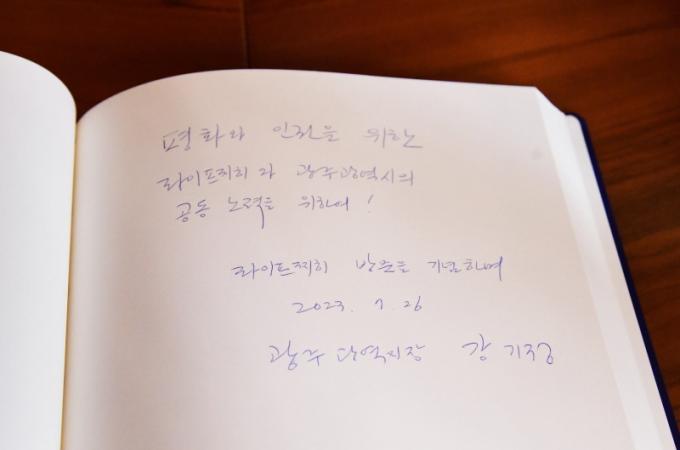 평화와 인권을 위한
라이프찌히와 광주광역시의
공동 노력을 위하여!
라이프찌히 방문을 기념하며
2023. 7. 26
광주광역시장 강기정